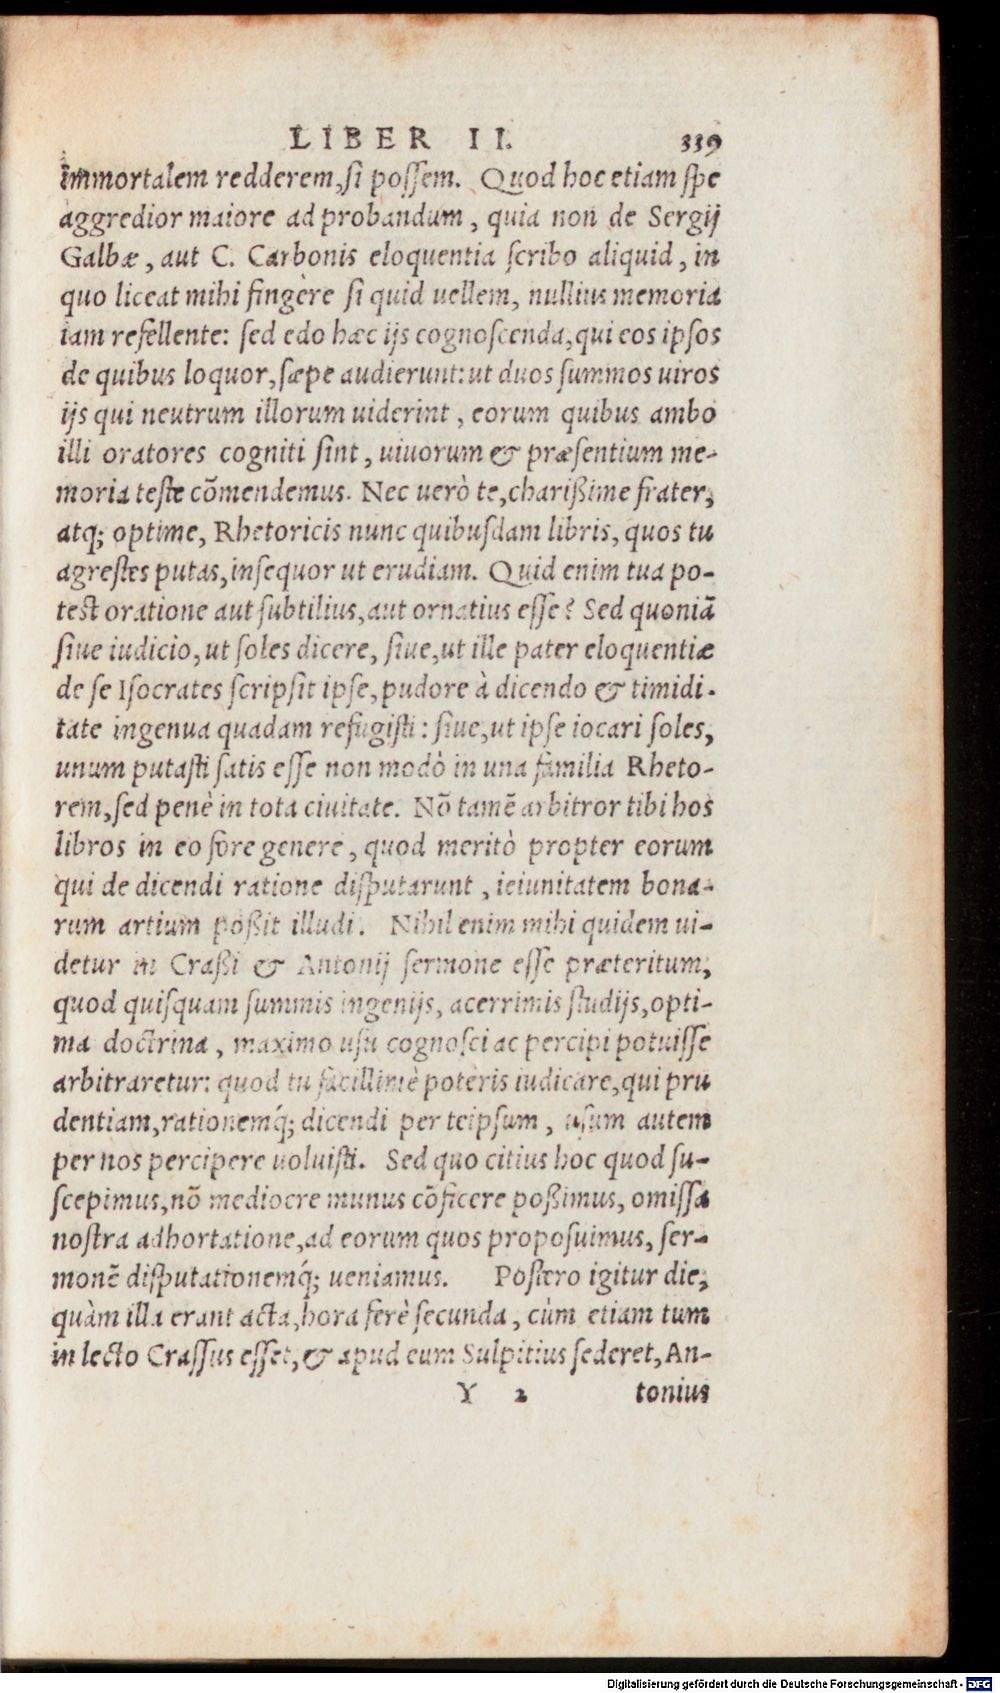 LIBER II. 339
immortalem redderem, si possem. Quod hoc etiam spe
aggredior maiore ad probandum, quia non de Sergij
Galbæ, aut C. Carbonis eloquentia scribo aliquid, in
quo liceat mihi fingere si quid uellem, nullius memoria
iam refellente: sed edo hæc ijs cognoscenda, qui eos ipsos
de quibus loquor, sæpe audierunt: ut duos summos uiros
ijs qui neutrum illorum uiderint, eorum quibus ambo
illi oratores cogniti sint, uiuorum & præsentium me-
moria teste cõmendemus. Nec uerò te, charißime frater,
atq; optime, Rhetoricis nunc quibusdam libris, quos tu
agrestes putas, insequor ut erudiam. Quid enim tua po-
test oratione aut subtilius, aut ornatius esse? Sed quoniã
siue iudicio, ut soles dicere, siue, ut ille pater eloquentiæ
de se Isocrates scripsit ipse, pudore à dicendo & timidi-
tate ingenua quadam refugisti: siue, ut ipse iocari soles,
unum putasti satis esse non modò in una familia Rheto-
rem, sed penè in tota ciuitate. Nõ tamẽ arbitror tibi hos
libros in eo fore genere, quod meritò propter eorum
qui de dicendi ratione disputarunt, ieiunitatem bona-
rum artium poßit illudi. Nihil enim mihi quidem ui-
detur in Craßi & Antonij sermone esse præteritum,
quod quisquam summis ingenijs, acerrimis studijs, opti-
ma doctrina, maximo usu cognosci ac percipi potuisse
arbitraretur: quod tu facillimè poteris iudicare, qui pru
dentiam, rationemq́; dicendi per teipsum, usum autem
per nos percipere uoluisti. Sed quo citius hoc quod su-
scepimus, nõ mediocre munus cõficere poßimus, omissa
nostra adhortatione, ad eorum quos proposuimus, ser-
monẽ disputationemq́; ueniamus. Postero igitur die,
quàm illa erant acta, hora ferè secunda, cùm etiam tum
in lecto Crassus esset, & apud eum Sulpitius sederet, An-
Y 2 tonius
Digitalisierung gefördert durch die Deutsche Forschungsgemeinschaft - DFG